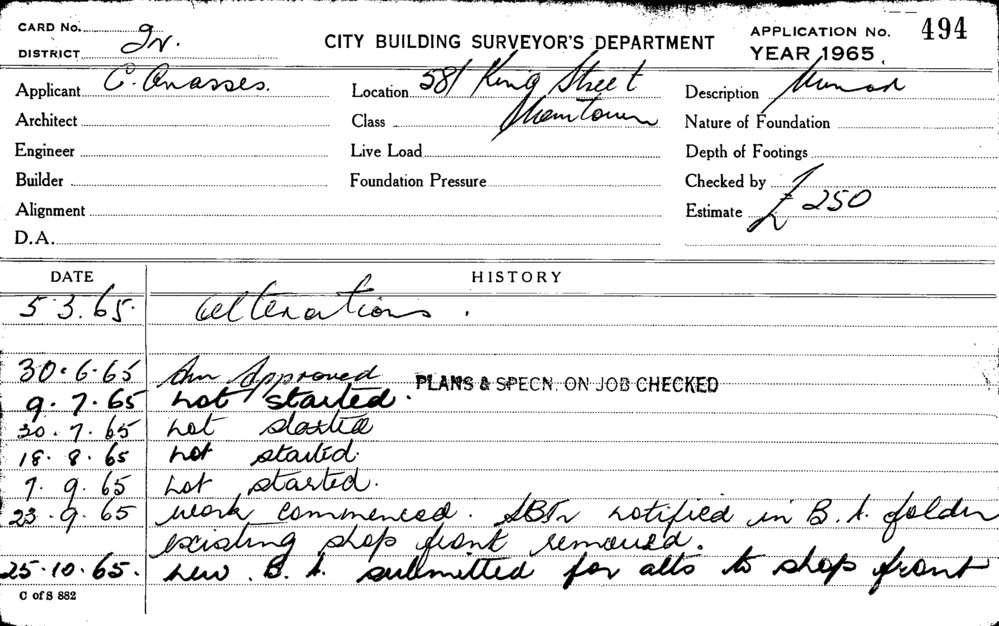 CARD No.
DISTRICT
CITY BUILDING SURVEYOR'S DEPARTMENT
APPLICATION No. 494
YEAR 1965.
Applicant C.
Location 581 King Street
Description
Architect
Class Newtown
Nature of Foundation
Engineer
Live Load
Depth of Footings
Builder
Foundation Pressure
Checked by
Alignment
Estimate £ 250
D.A.
DATE HISTORY
5.3.65. alterations.
30.6.65 Approved PLANS & SPECN. ON JOB CHECKED
9.7.65 not started.
20.7.65 not started
18.8.65 not started.
7.9.65 not started.
23.9.65 work commenced. notified in B.A. folder
existing shop front removed.
25.10.65. new B.A. submitted for alts to shop front
C of S 882